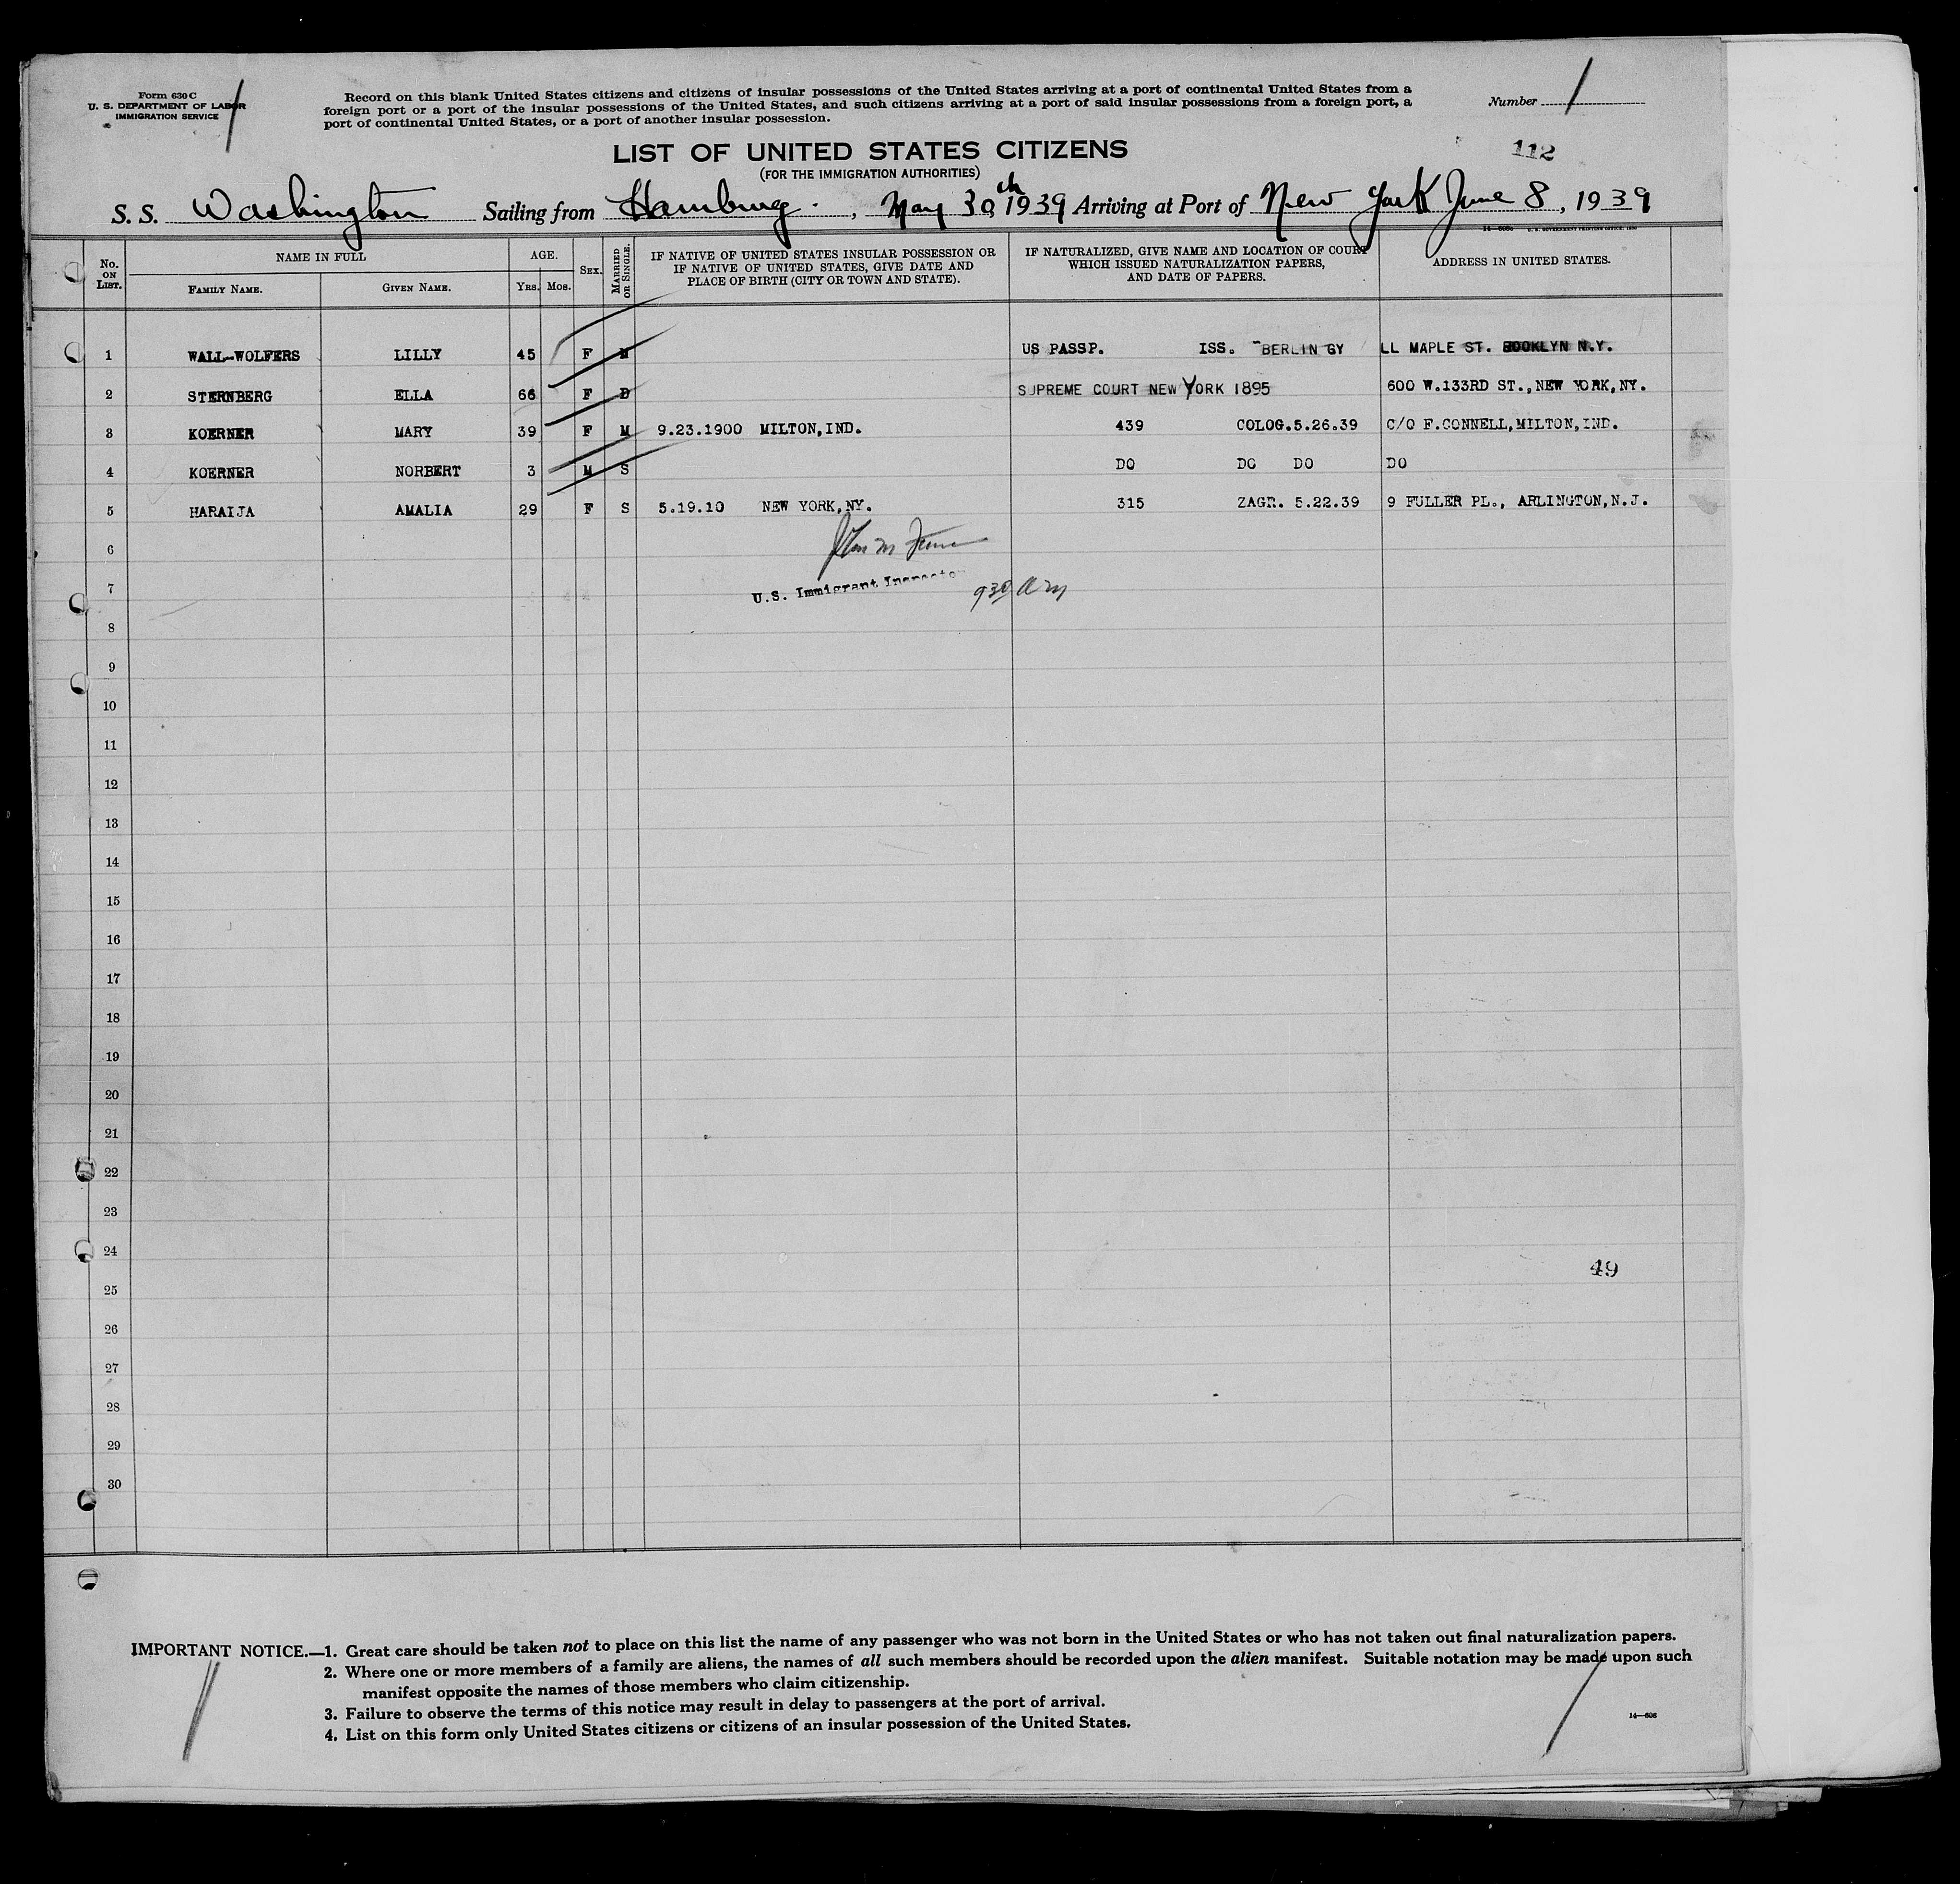 Form 630 C
U. S. DEPARTMENT OF LABOR
IMMIGRATION SERVICE
Record on this blank United States citizens and citizens of insular possessions of the United States arriving at a port of continental United States from a
foreign port or a port of the insular possessions of the United States, and such citizens arriving at a port of said insular possessions from a foreign port, a
port of continental United States, or a port of another insular possession.
Number 1
LIST OF UNITED STATES CITIZENS
112
(FOR THE IMMIGRATION AUTHORITIES)
S. S. Washington Sailing from Hamburg. , May 30th 1939 Arriving at Port of New York June 8, 1939
No. ON LIST. NAME IN FULL AGE. SEX. MARRIED OR SINGLE. IF NATIVE OF UNITED STATES INSULAR POSSESSION OR IF NATIVE OF UNITED STATES, GIVE DATE AND PLACE OF BIRTH (CITY OR TOWN AND STATE). IF NATURALIZED, GIVE NAME AND LOCATION OF COURT WHICH ISSUED NATURALIZATION PAPERS, AND DATE OF PAPERS. ADDRESS IN UNITED STATES.
FAMILY NAME. GIVEN NAME. YRS. MOS.
1 WALL-WOLFERS LILLY 45 F M US PASSP. ISS. BERLIN GY LL MAPLE ST. BOOKLYN N.Y.
2 STERNBERG ELLA 66 F D SUPREME COURT NEW YORK 1895 600 W.133RD ST., NEW YORK, NY.
3 KOERNER MARY 39 F M 9.23.1900 MILTON, IND. 439 COLOG. 5.26.39 C/O F.CONNELL, MILTON, IND.
4 KOERNER NORBERT 3 M S DO DO DO DO
5 HARAIJA AMALIA 29 F S 5.19.10 NEW YORK, NY. 315 ZAGR. 5.22.39 9 FULLER PL., ARLINGTON, N.J.
6
7 U.S. Immigrant Inspector 930 am
8
9
10
11
12
13
14
15
16
17
18
19
20
21
22
23
24
49
25
26
27
28
29
30
IMPORTANT NOTICE.—1. Great care should be taken not to place on this list the name of any passenger who was not born in the United States or who has not taken out final naturalization papers.
2. Where one or more members of a family are aliens, the names of all such members should be recorded upon the alien manifest. Suitable notation may be made upon such
manifest opposite the names of those members who claim citizenship.
3. Failure to observe the terms of this notice may result in delay to passengers at the port of arrival.
4. List on this form only United States citizens or citizens of an insular possession of the United States.